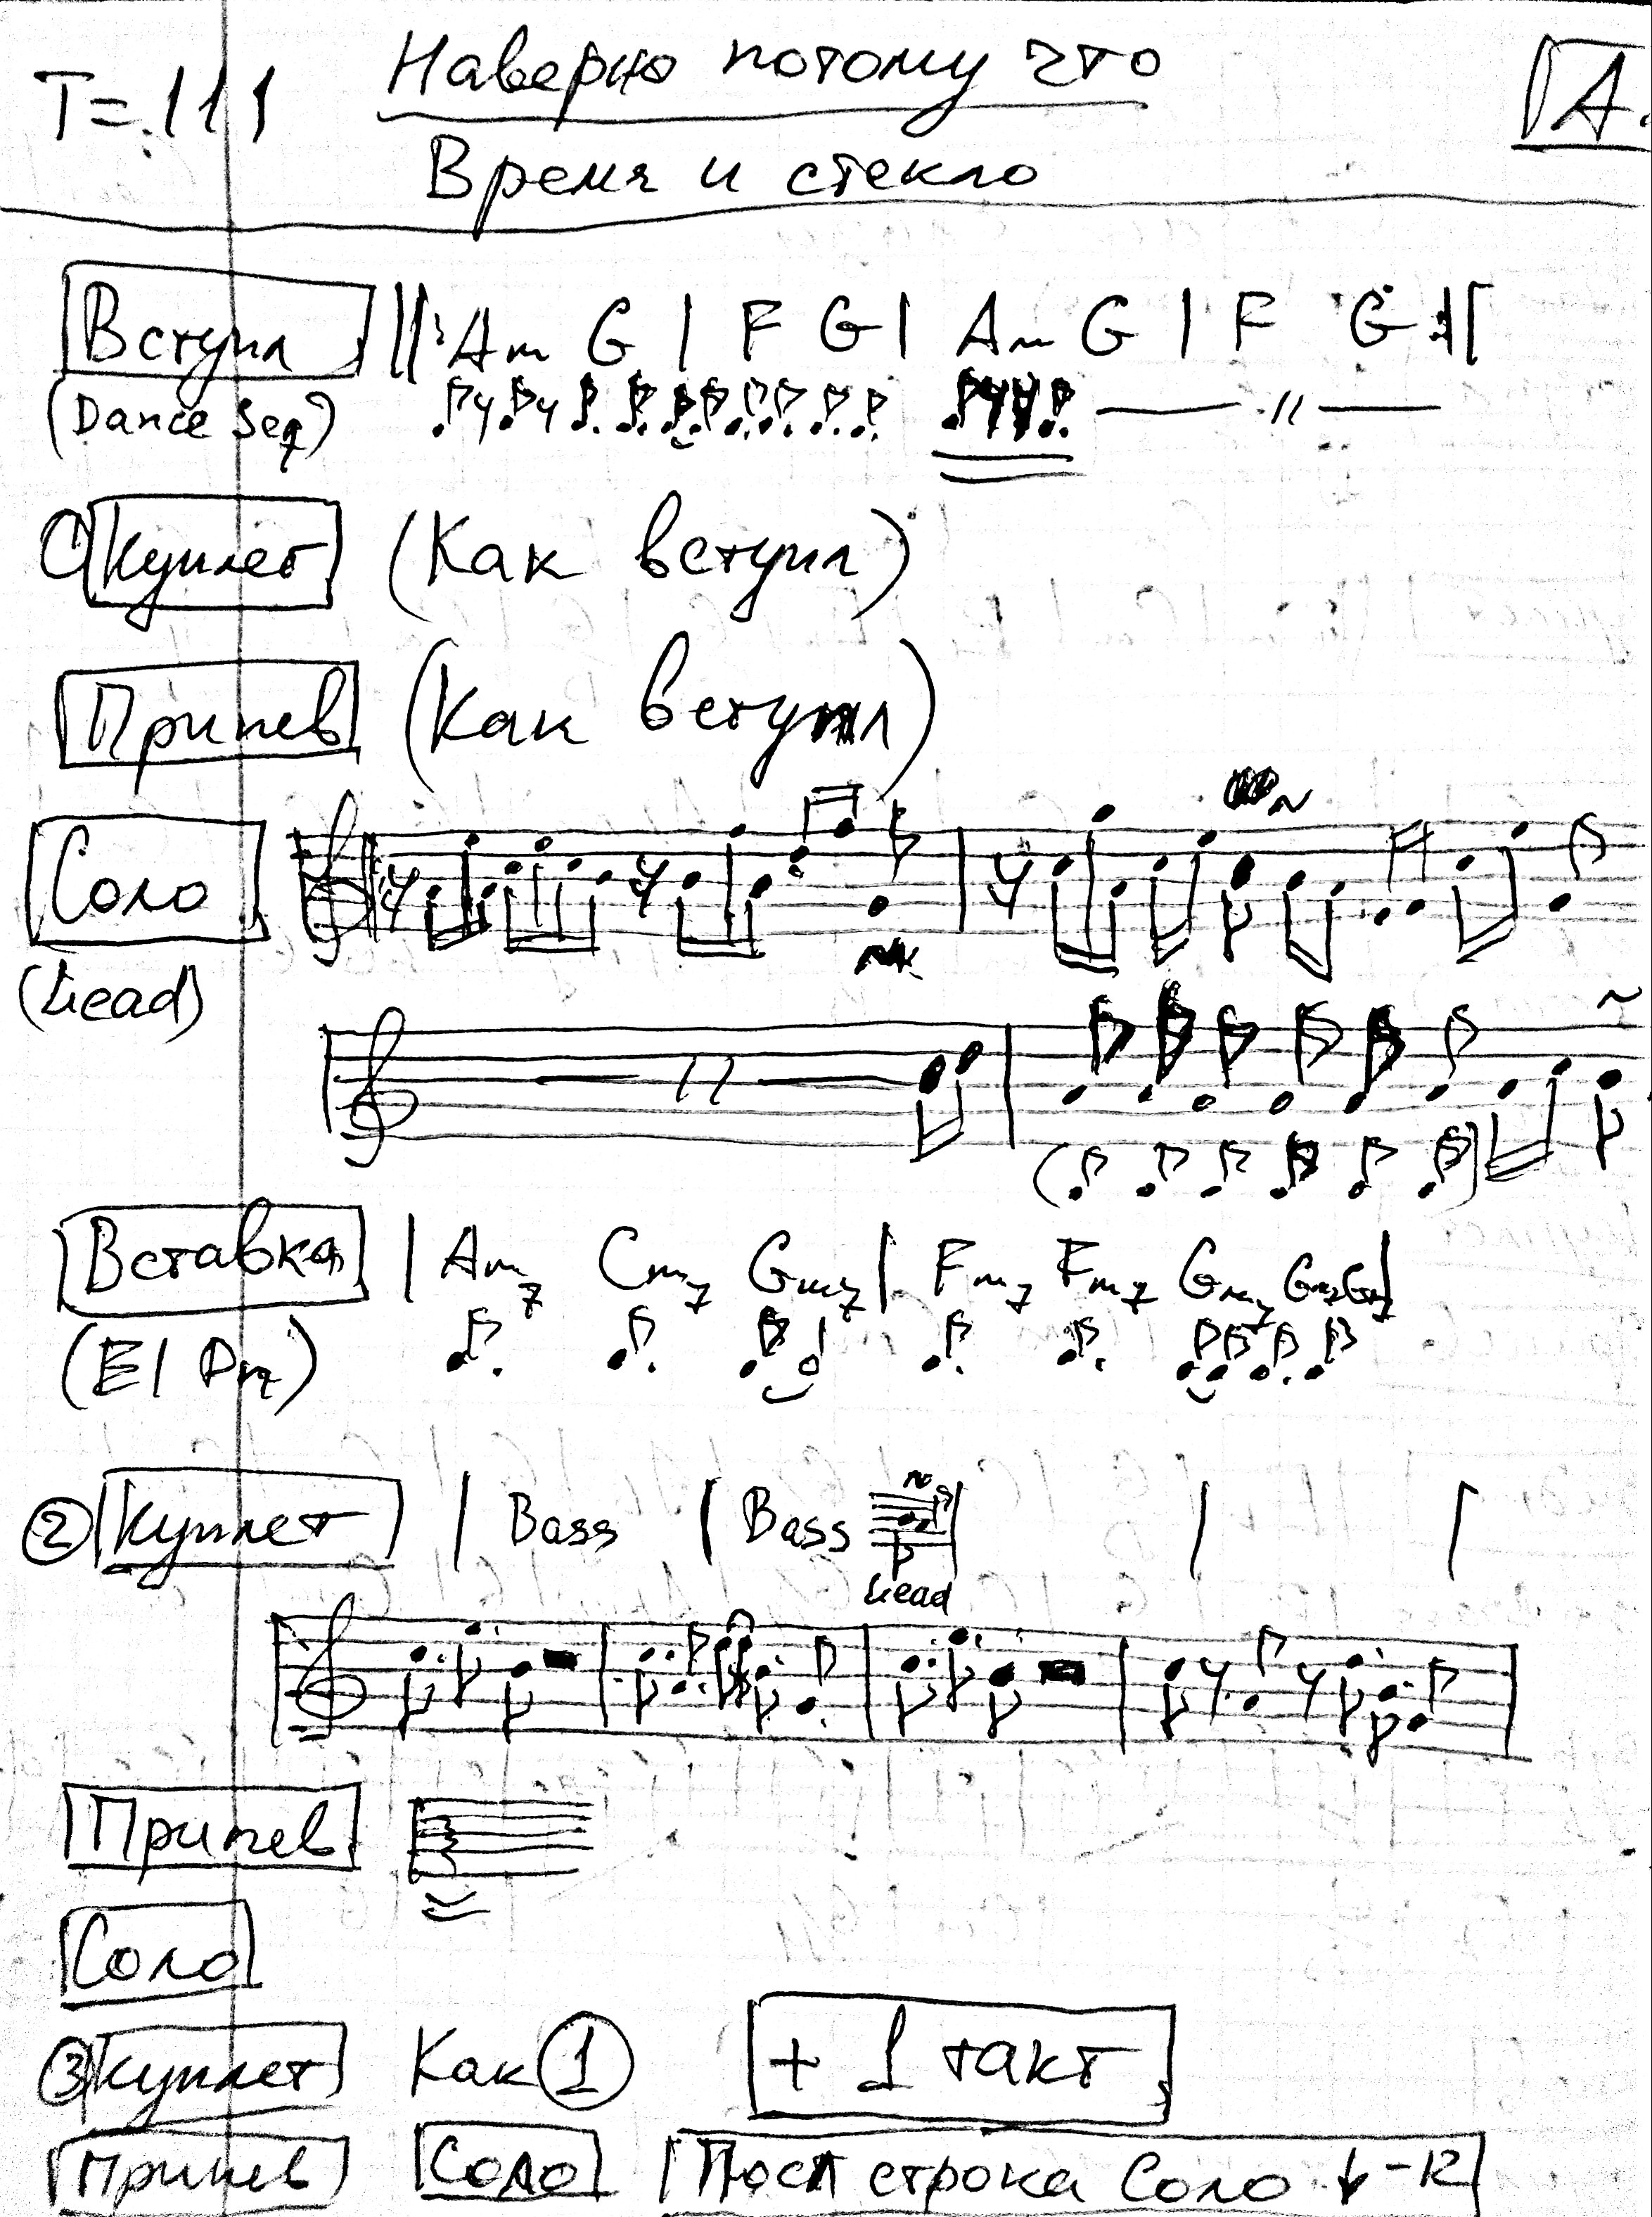 T=111 Наверно потому что A.
Время и стекло
Вступл ||: Am G | F G | Am G | F G :||
(Dance Seq) — // —
Куплет (Как вступл)
Припев (Как вступл)
Соло
(Lead)
— // —
Вставка | Am7 Cm7 Gm7 | Fm7 Fm7 Gm7 Gm7 Gm7 |
(El Pn)
② Куплет | Bass | Bass | | |
Lead
Припев
Соло
③ Куплет Как ① + 1 такт
Припев Соло Посл строка Соло ↓ -12